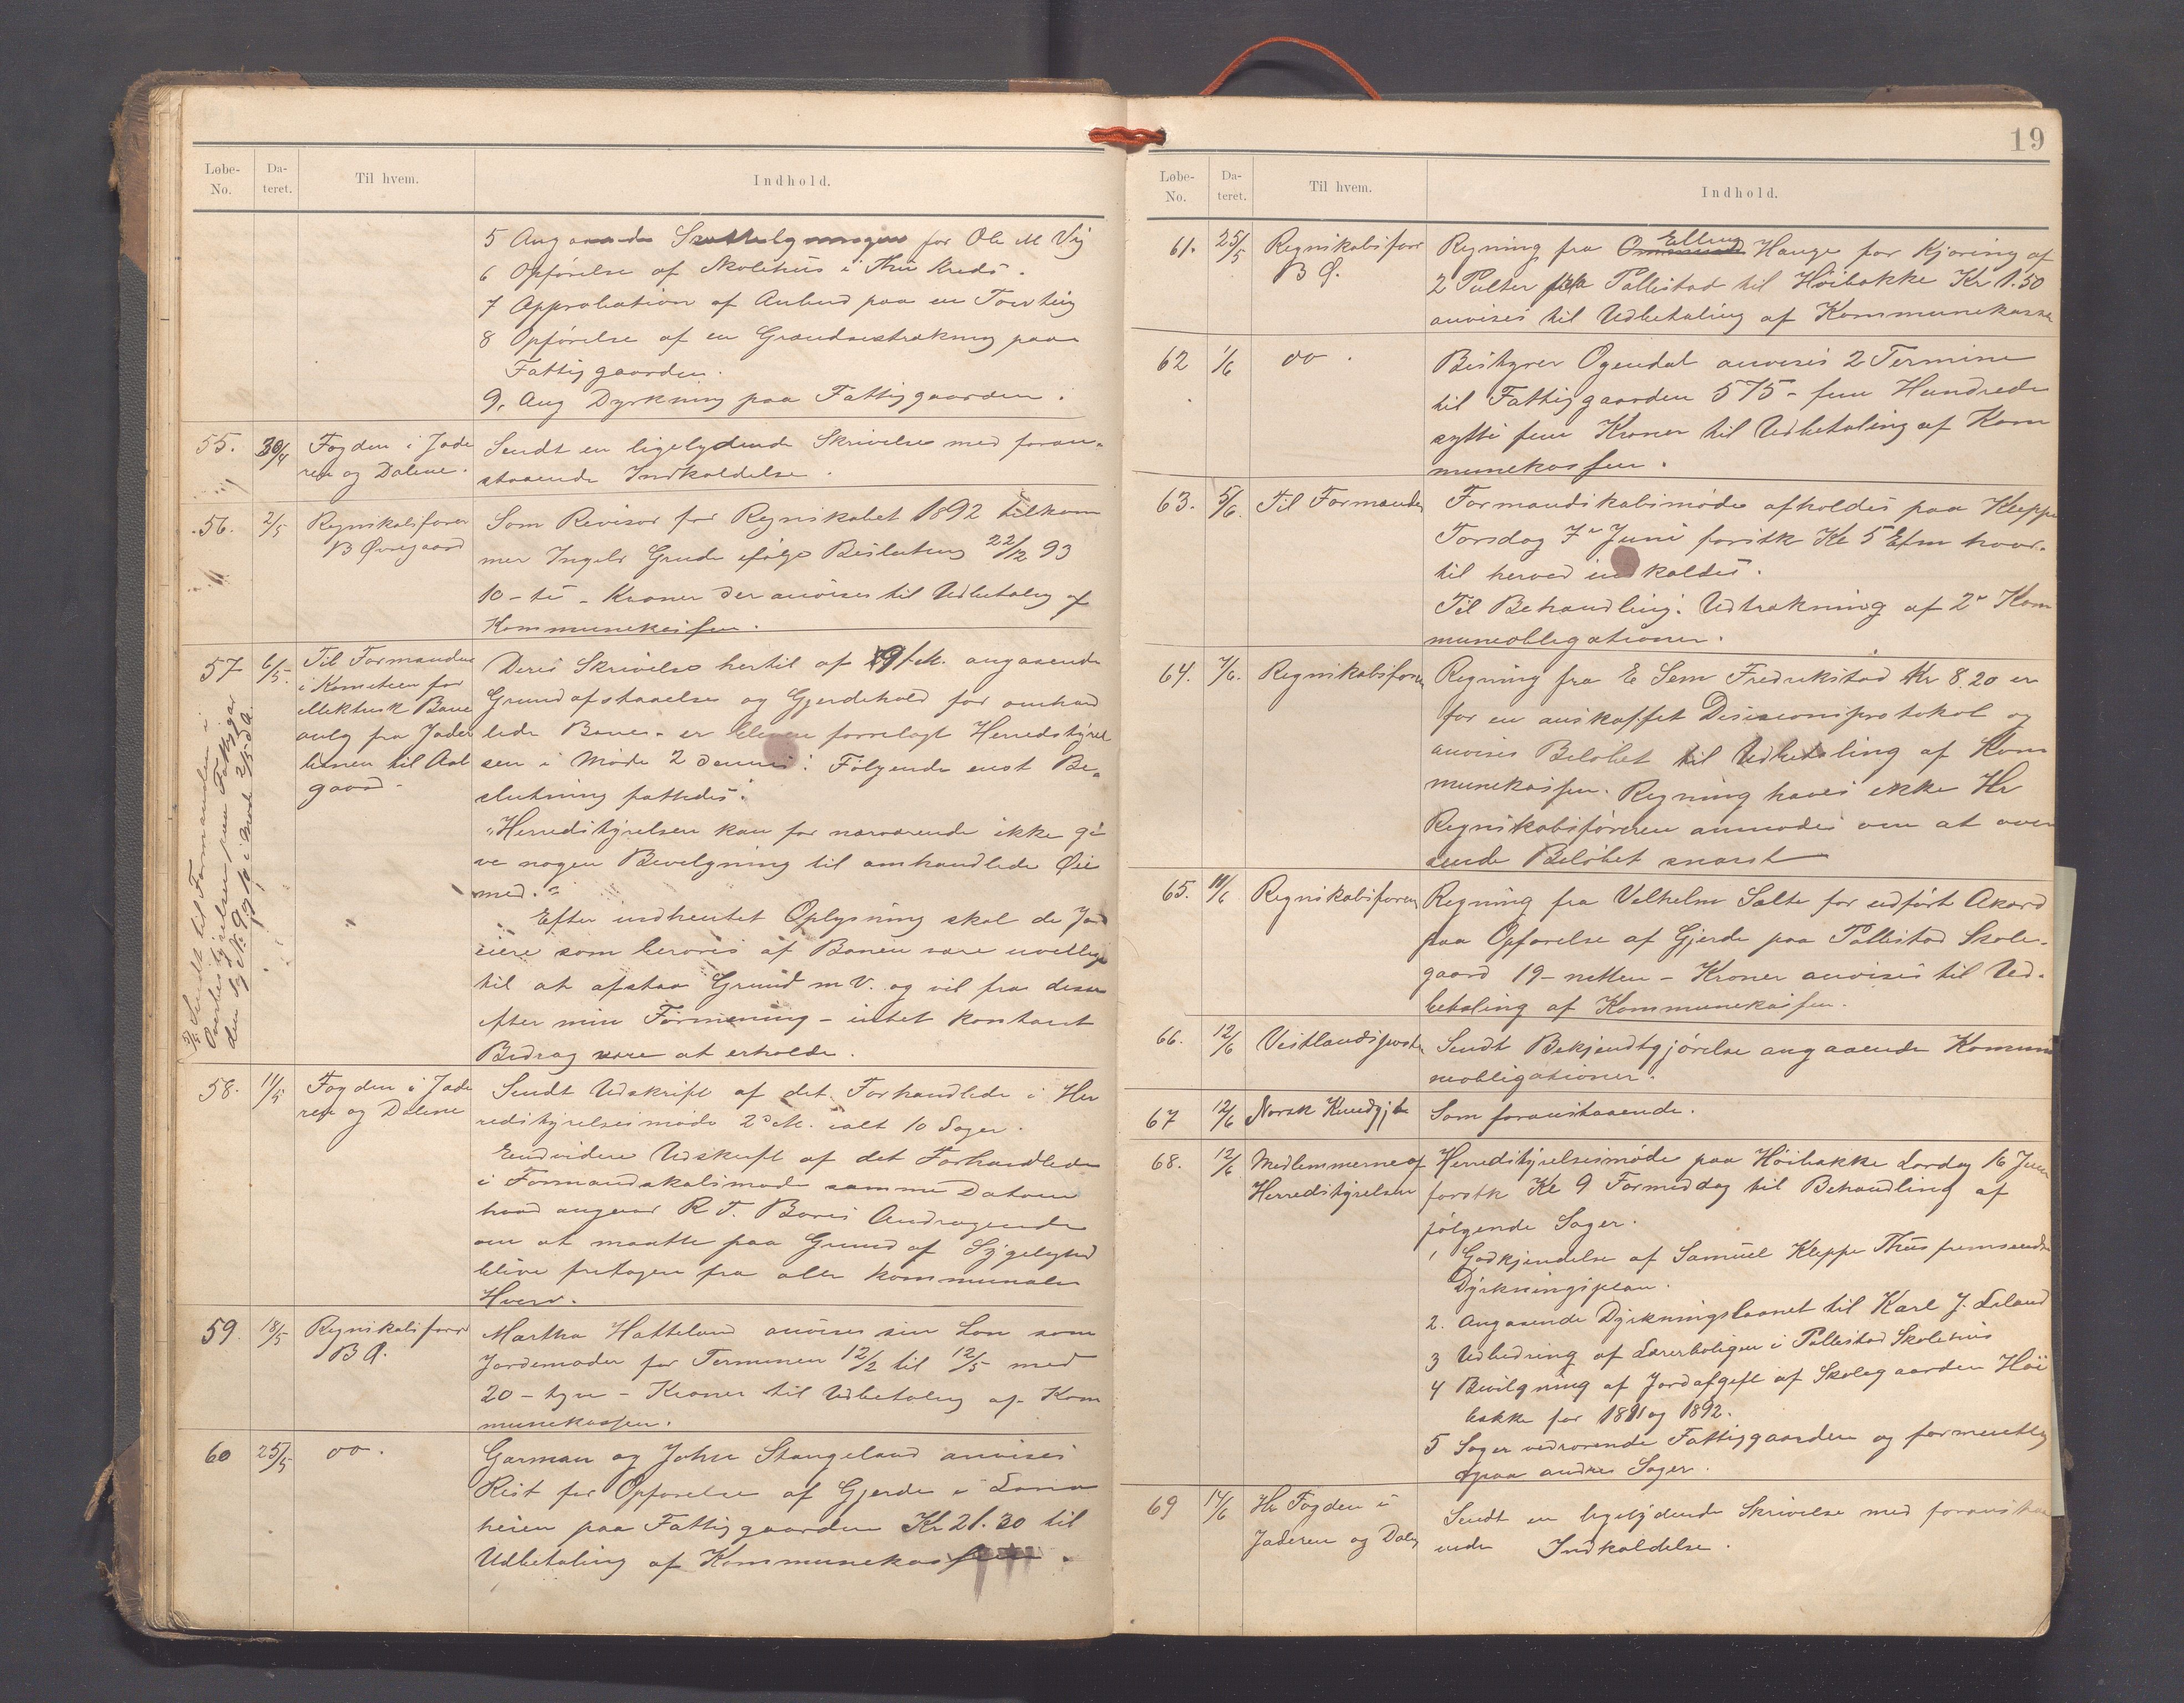 Løbe-No. Dateret. Til hvem. Indhold.
5 Angaaende Skattelygningen for Ole M Vig
6 Opførelse af Skolehus i Thu Kreds.
7 Approbation af Anbud paa en Torvting
8 Opførelse af en Grændsestrækning paa
Fattiggaarden.
9, Ang Dyrkning paa Fattiggaarden.
55. 30/4 Fogden i Jade
ren og Dalene.
Sendt en ligelydende Skrivelse med foran-
staaende Indkaldelse.
56. 2/5 Regnskabsfører
B Øvregaard
Som Revisor for Regnskabet 1892 tilkom
mer Ingebr Grude ifølge Beslutning 22/12 93
10 - ti - Kroner der anvises til Udbetaling af
Kommunekassen.
57 6/5. Til Formanden
i Komiteen for
ellektrisk Bane
anlg fra Jader
banen til Aal
gaard.
Deres Skrivelse hertil af 29 f. M. angaaende
Grundafstaaelse og Gjerdehold for omhand
lede Bane - er bleven forelagt Herredstyrel
sen i Møde 2 dennes. Følgende enst Be-
slutning fattedes:
"Herredstyrelsen kan for nærværende ikke gi
ve nogen Bevilgning til omhandlede Øie
med."
Efter indhentet Oplysning skal de Jord
eiere som berøres af Banen være uvillige
til at afstaa Grund m V. og vil fra disse
efter min Formening - intet kontant
Bidrag være at erholde.
5/5 Sendt til Formanden i
Overbestyrelsen paa Fattiggar
den Sag No 9 og 10 i Møde 2/5 d. A.
58. 11/5 Fogden i Jade
ren og Dalene
Sendt Udskrift af det Forhandlede i Her
redstyrelsesmøde 2 d. M. ialt 10 Sager.
Endvidere Udskrift af det Forhandlede
i Formandskabsmøde samme Datum
hvad angaar R T. Bores Andragende
om at maatte paa Grund af Sygelighed
blive fritagen fra alle kommunale
Hverv.
59. 18/5 Regnskabsfører
B Ø.
Martha Hatteland anvises sin Løn som
Jordemoder for Terminen 12/2 til 12/5 med
20 - tyve - Kroner til Udbetaling af Kom
munekassen.
60 25/5 do.
Garman og John Stangeland anvises
Rest for Opførelse af Gjerde i Lona
heien paa Fattiggaarden Kr 21.30 til
Udbetaling af Kommunekassen.
19
Løbe-No. Dateret. Til hvem. Indhold.
61. 25/5 Regnskabsfører
B Ø.
Elling
Regning fra Ommund Hauge for Kjøring af
2 Pulter fra Pollestad til Høibakke Kr 1.50
anvises til Udbetaling af Kommunekasse
62 1/6 do.
Bestyrer Ogendal anvises 2 Termine
til Fattiggaarden 575 - fem Hundrede
sytti fem Kroner til Udbetaling af Kom
munekassen.
63. 5/6. Til Formænden
Formandskabsmøde afholdes paa Kleppe
Torsdag 7de Juni førstk Kl 5 Efm hvor-
til herved indkaldes.
Til Behandling: Udtrækning af 2de Kom
muneobligationer.
64. 7/6. Regnskabsfører
Regning fra E Sem Fredrikstad Kr 8.20 er
for en anskaffet Desisionsprotokol og
anvises Beløbet til Udbetaling af Kom
munekassen. Regning haves ikke Hr
Regnskabsføreren anmodes om at over
sende Beløbet snarest
65. 11/6 Regnskabsføren
Regning fra Velhelm Salte for udført Akord
paa Opførelse af Gjerde paa Pollestad Skole-
gaard 19 - nitten - Kroner anvises til Ud-
betaling af Kommunekassen.
66. 12/6 Vestlandsposten
Sendt Bekjendtgjørelse angaaende Kommu
neobligationer.
67 12/6 Norsk Kundgjt
Som foranstaaende.
68. 12/6 Medlemmerne af
Herredstyrelsen
Herredstyrelsesmøde paa Høibakke Lørdag 16 Juni
førstk Kl 9 Formiddag til Behandling af
følgende Sager.
1 Godkjendelse af Samuel Kleppe Thus fremsendte
Dyrkningsplan.
2. Angaaende Dyrkningslaanet til Karl J. Leland
3 Udbedring af Lærerboligen i Pollestad Skolehus
4 Bevilgning af Jordafgift af Skolegaarden Høi
bakke for 1891 og 1892.
5 Sager vedrørende Fattiggaarden og formentlig
ogsaa andre Sager.
69 14/6 Hr Fogden i
Jaderen og Dale
Sendt en ligelydende Skrivelse med foransta
ende Indkaldelse.